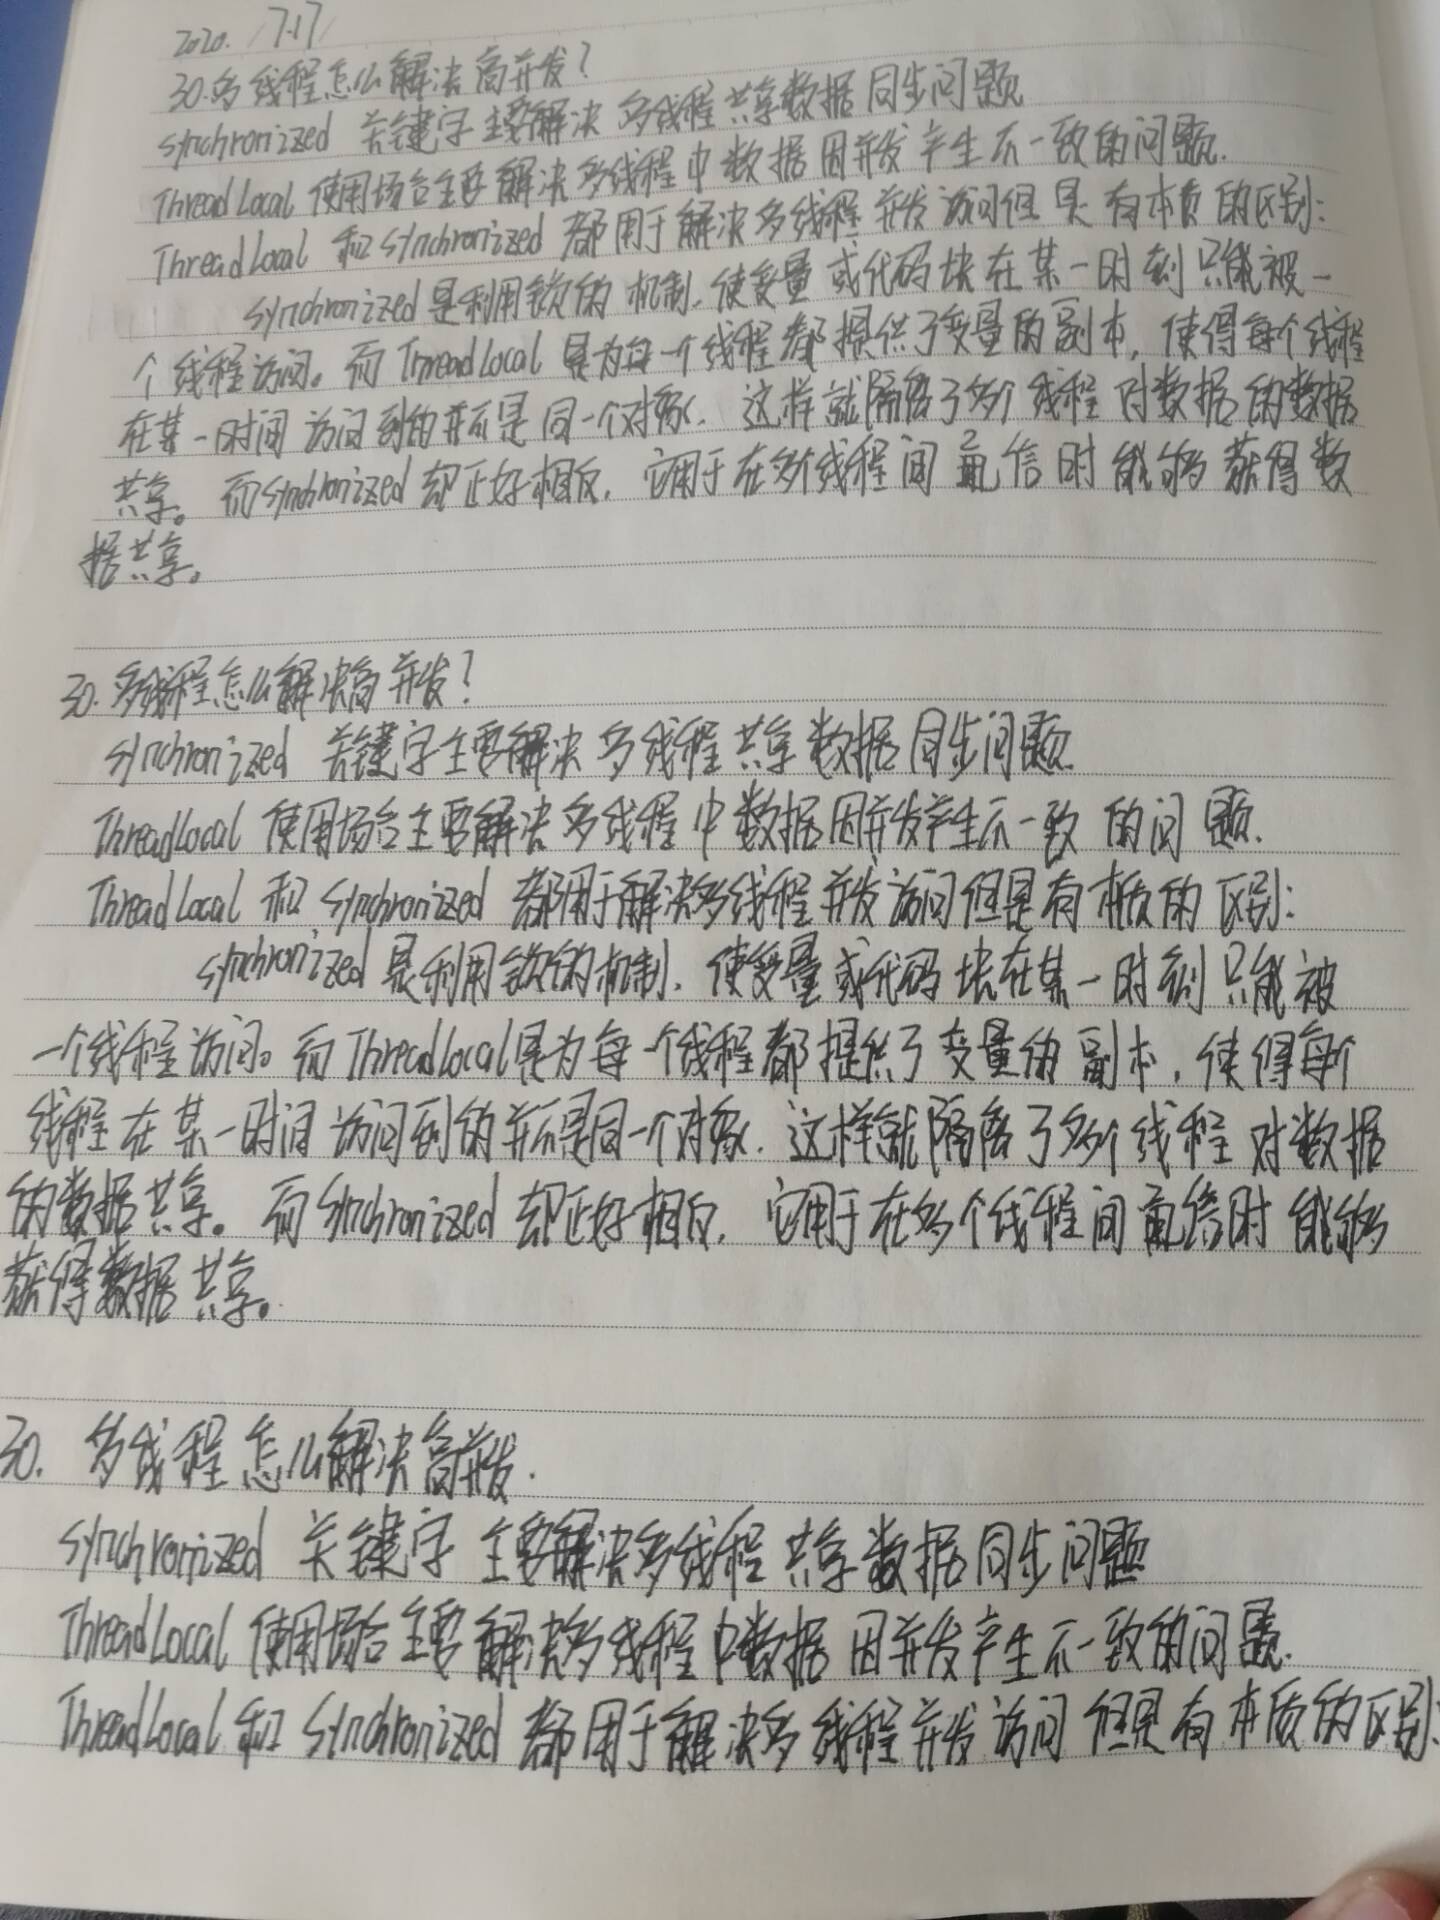 2020. /7.17/
30.多线程怎么解决高并发?
synchronized 关键字主要解决多线程共享数据同步问题
ThreadLocal 使用场合主要解决多线程中数据因并发产生不一致的问题.
ThreadLocal 和 synchronized 都用于解决多线程并发访问但是有本质的区别:
synchronized是利用锁的机制,使变量或代码块在某一时刻只能被一
个线程访问。而ThreadLocal是为每一个线程都提供了变量的副本,使得每个线程
在某一时间访问到的并不是同一个对象.这样就隔离了多个线程对数据的数据
共享。而synchronized却正好相反,它用于在多个线程间通信时能够获得数
据共享。
30.多线程怎么解决高并发?
synchronized 关键字主要解决多线程共享数据同步问题
ThreadLocal 使用场合主要解决多线程中数据因并发产生不一致的问题.
ThreadLocal 和 synchronized 都用于解决多线程并发访问但是有本质的区别:
synchronized是利用锁的机制,使变量或代码块在某一时刻只能被
一个线程访问。而ThreadLocal是为每一个线程都提供了变量的副本,使得每个
线程在某一时间访问到的并不是同一个对象.这样就隔离了多个线程对数据
的数据共享。而synchronized却正好相反,它用于在多个线程间通信时能够
获得数据共享。
30. 多线程怎么解决高并发.
synchronized 关键字主要解决多线程共享数据同步问题
ThreadLocal 使用场合主要解决多线程中数据因并发产生不一致的问题.
ThreadLocal 和 synchronized 都用于解决多线程并发访问但是有本质的区别: